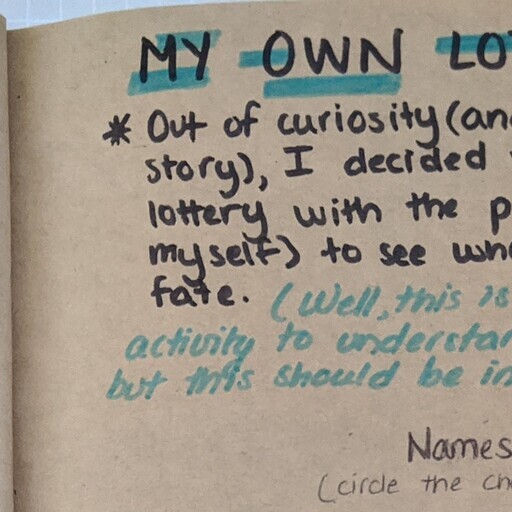 MY OWN LOT
* Out of curiosity (an
story), I decided
lottery with the p
myself) to see wh
fate. (Well, this is
activity to understan
but this should be in
Names
(circle the ch